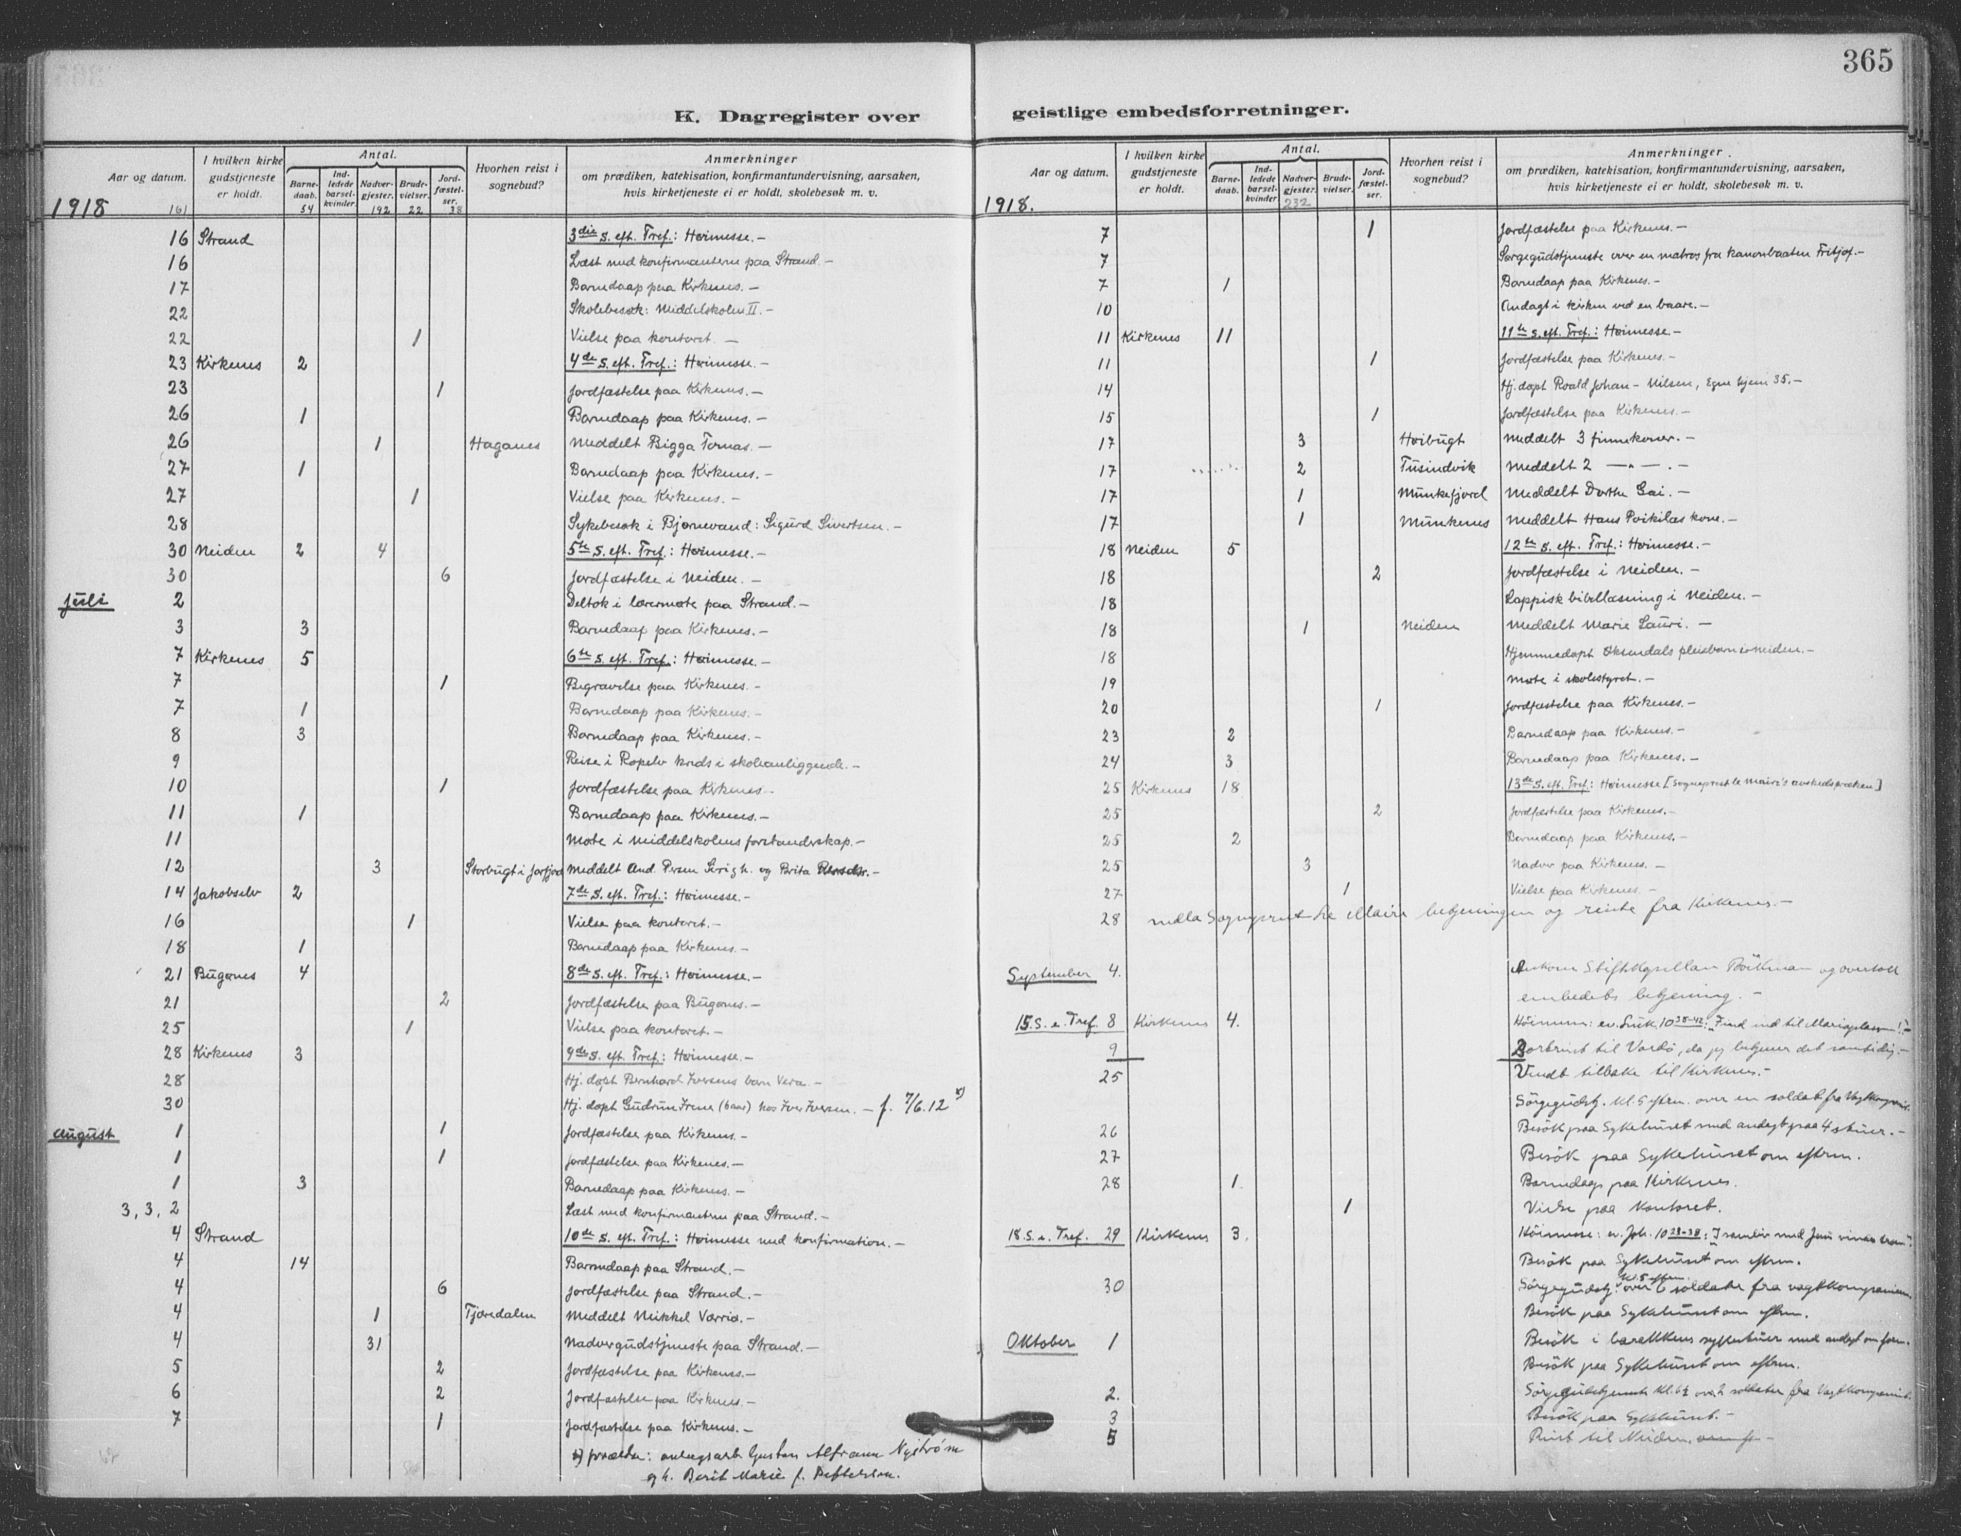 365
K. Dagregister over
Aar og datum.
I hvilken kirke gudstjeneste er holdt.
Antal.
Barnedaab.
Indledede barselkvinder.
Nadvergjester.
Brudevielser.
Jordfæstelser.
Hvorhen reist i sognebud?
Anmerkninger
om prædiken, katekisation, konfirmantundervisning, aarsaken,
hvis kirketjeneste ei er holdt, skolebesøk m. v.
1918 161 54 192 22 38
16 Strand 3die s. eft. Tref.: Høimesse.—
16 Læst med konfirmanterne paa Strand.—
17 Barnedaap paa Kirkenes.—
22 Skolebesøk: Middelskolen II.—
22 1 Vielse paa kontoret.—
23 Kirkenes 2 4de s. eft. Tref.: Høimesse.—
23 1 Jordfæstelse paa Kirkenes.—
26 1 Barnedaap paa Kirkenes.—
26 1 Haganes Meddelt Bigga Tornas.—
27 1 Barnedaap paa Kirkenes.—
27 1 Vielse paa Kirkenes.—
28 Sykebesøk i Bjørnevand: Sigurd Sivertsen.—
30 Neiden 2 4 5te s. eft. Tref.: Høimesse.—
30 6 Jordfæstelse i Neiden.—
Juli 2 Deltok i lærermøte paa Strand.—
3 3 Barnedaap paa Kirkenes.—
7 Kirkenes 5 6te s. eft. Tref.: Høimesse.—
7 1 Begravelse paa Kirkenes.—
7 1 Barnedaap paa Kirkenes.—
8 3 Barnedaap paa Kirkenes.—
9 Reise i Ropelv kreds i skoleanliggende.—
10 1 Jordfæstelse paa Kirkenes.—
11 1 Barnedaap paa Kirkenes.—
11 Møte i Middelskolens forstanderskap.—
12 3 Storbugt i Jarfjord Meddelt And. Persen h. og Brita
14 Jakobselv 2 7de s. eft. Tref.: Høimesse.—
16 1 Vielse paa kontoret.—
18 1 Barnedaap paa Kirkenes.—
21 Bugønes 4 8de s. eft. Tref.: Høimesse.—
21 2 Jordfæstelse paa Bugønes.—
25 1 Vielse paa kontoret.—
28 Kirkenes 3 9de s. eft. Tref.: Høimesse.—
28 Hj. døpt Bernhard Iversens barn Vera.—
30 Hj. døpt Gudrun Irene (6 aar) hos Iver Iversen.— f. 7/6.12 x)
August 1 1 Jordfæstelse paa Kirkenes.—
1 1 Jordfæstelse paa Kirkenes.—
1 3 Barnedaap paa Kirkenes.—
3, 3, 2 Læst med konfirmanterne paa Strand.—
4 Strand 10de s. eft. Tref.: Høimesse med konfirmation.—
4 14 Barnedaap paa Strand.—
4 6 Jordfæstelse paa Strand.—
4 1 Tjæredalen Meddelt Mikkel Varria.—
4 31 Nadvergudstjeneste paa Strand.—
5 2 Jordfæstelse paa Kirkenes.—
6 2 Jordfæstelse paa Kirkenes.—
7 1 Jordfæstelse paa Kirkenes.—
x) forældre: anlægsarb. Gustav Alfrann Nyström
og h. Berit Marie f.
geistlige embedsforretninger.
Aar og datum.
I hvilken kirke gudstjeneste er holdt.
Antal.
Barnedaab.
Indledede barselkvinder
Nadvergjester.
Brudevielser.
Jordfæstelser.
Hvorhen reist i sognebud?
Anmerkninger.
om prædiken, katekisation, konfirmantundervisning, aarsaken,
hvis kirketjeneste ei er holdt, skolebesøk m. v.
1918. 232
7 1 Jordfæstelse paa Kirkenes.—
7 Sørgegudstjeneste over en matros fra kanonbaaten Fritjof.—
7 1 Barnedaap paa Kirkenes.—
10 Andagt i kirken ved en baare.—
11 Kirkenes 11 11te s. eft. Tref.: Høimesse.—
11 1 Jordfæstelse paa Kirkenes.—
14 Hj. døpt Roald Johan — Nilsen, Egne hjem 35.—
15 1 Jordfæstelse paa Kirkenes.—
17 3 Høibugt Meddelt 3 finnekoner.—
17 2 Tusindvik Meddelt 2 —„—.—
17 1 Munkefjord Meddelt Dorthe Gai.—
17 1 Munkenes Meddelt Hans Poikilas kone.—
18 Neiden 5 12te s. eft. Tref.: Høimesse.—
18 2 Jordfæstelse i Neiden.—
18 Lappisk bibellæsning i Neiden.—
18 1 Neiden Meddelt Marie Lauri.—
18 Hjemmedøpt Oksendals pleiebarn i Neiden.—
19 Møte i skolestyret.—
20 1 Jordfæstelse paa Kirkenes.—
23 2 Barnedaap paa Kirkenes.—
24 3 Barnedaap paa Kirkenes.—
25 Kirkenes 18 13de s. eft. Tref.: Høimesse [Sogneprest le Maire's avskedspræken]
25 2 Jordfæstelse paa Kirkenes.—
25 2 Barnedaap paa Kirkenes.—
25 3 Nadver paa Kirkenes.—
27 1 Vielse paa Kirkenes.—
28 nedla Sogneprest le Maire betjeningen og reiste fra Kirkenes.—
September 4. Ankom Stiftskapellan Bökman og overtok
embedets betjening.—
15. S. e. Tref. 8 Kirkenes 4. Höimesse: ev. Luk. 10 38-42: "Find ind til
9 Bortreist til Vardö, da jeg betjener det samtidig.—
25 Vendt tilbake til Kirkenes.—
Sörgegudstj. kl. 5 eftm. over en soldat fra Vagtkompaniet.
26 Besök paa Sykehuset med andagt paa 4 stuer.—
27 Besök paa Sykehuset om eftm.
28 1. Barnedaap paa Kirkenes.
1 Vielse paa Kontoret.
18. S. e. Tref. 29 Kirkenes 3. Höimesse: ev. Joh. 10
Besök paa Sykehuset om eftm.
30 Sörgegudstj. kl. 5 eftm. over 6 soldater fra vagtkompaniet.
Besök paa Sykehuset om eftm.
Oktober 1 Besök i barakkens sykestuer med andagt om form.
Besök paa Sykehuset om eftm.
2. Sörgegudstjeneste kl. 6½ over 2 soldater fra Vagtkompaniet.
3 Besök paa Sykehuset.—
5 Reist til Neiden